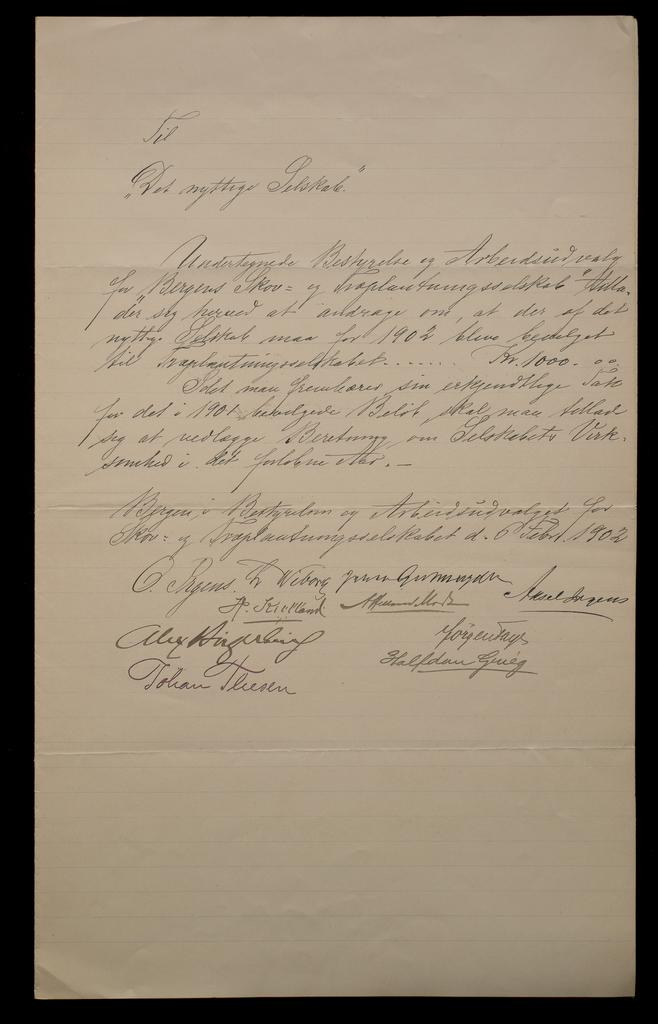 Til
„Det nyttige Selskab."
Undertegnede Bestyrelse og Arbeidsudvalg
for „Bergens Skov= og Træplantningsselskab" tilla-
der sig herved at andrage om, at der af det
nyttige Selskab maa for 1902 blive bevilget
til Træplantningsselskabet ...... Kr. 1000. 00
Idet man frembærer sin erkjendtlige Tak
for det i 1901 bevilgede Beløb, skal man tillade
sig at vedlægge Beretning om Selskabets Virk-
somhed i det forløbne Aar. –
Bergen, i Bestyrelsen og Arbeidsudvalget for
Skov= og Træplantningsselskabet d. 6 Febr. 1902
O. Irgens. Fr Wiborg Aksel Irgens
Kielland
Alex
Johan Thesen Halfdan Grieg